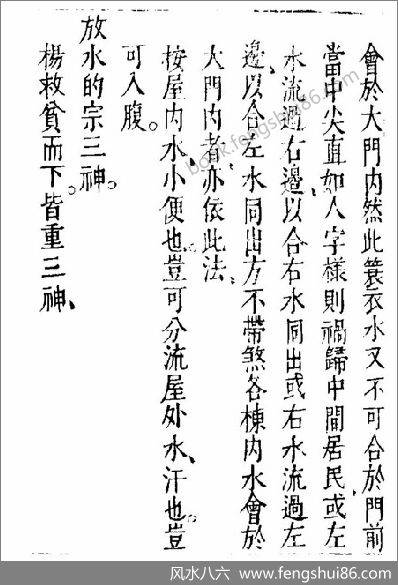 會於大門内然此簑衣水又不可合於門前
當中尖直如人字樣則禍歸中間居民或左
水流過右邊以合右水同出或右水流過左
邊以合左水同出方不帶煞各棟内水會於
大門内者亦依此法
按屋内水小便也。豈可分流屋外水、汗也。豈
可入腹。
放水的宗三神。
楊救貧而下。皆重三神、
book.fengshui86.com
风水八六 www.fengshui86.com